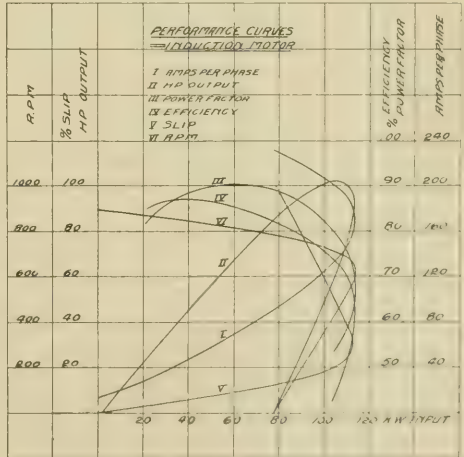 PERFORMANCE CURVES
INDUCTION MOTOR
I AMPS PER PHASE
II HP OUTPUT
III POWER FACTOR
IV EFFICIENCY
V SLIP
VI RPM
R.PM
% SLIP
HP OUTPUT
% EFFICIENCY
POWER FACTOR
AMPS PER PHASE
00 240
1000 100 90 200
800 80 80 160
600 60 70 120
400 40 60 80
200 20 50 40
III
IV
VI
II
I
V
20 40 60 80 100 120 KW INPUT